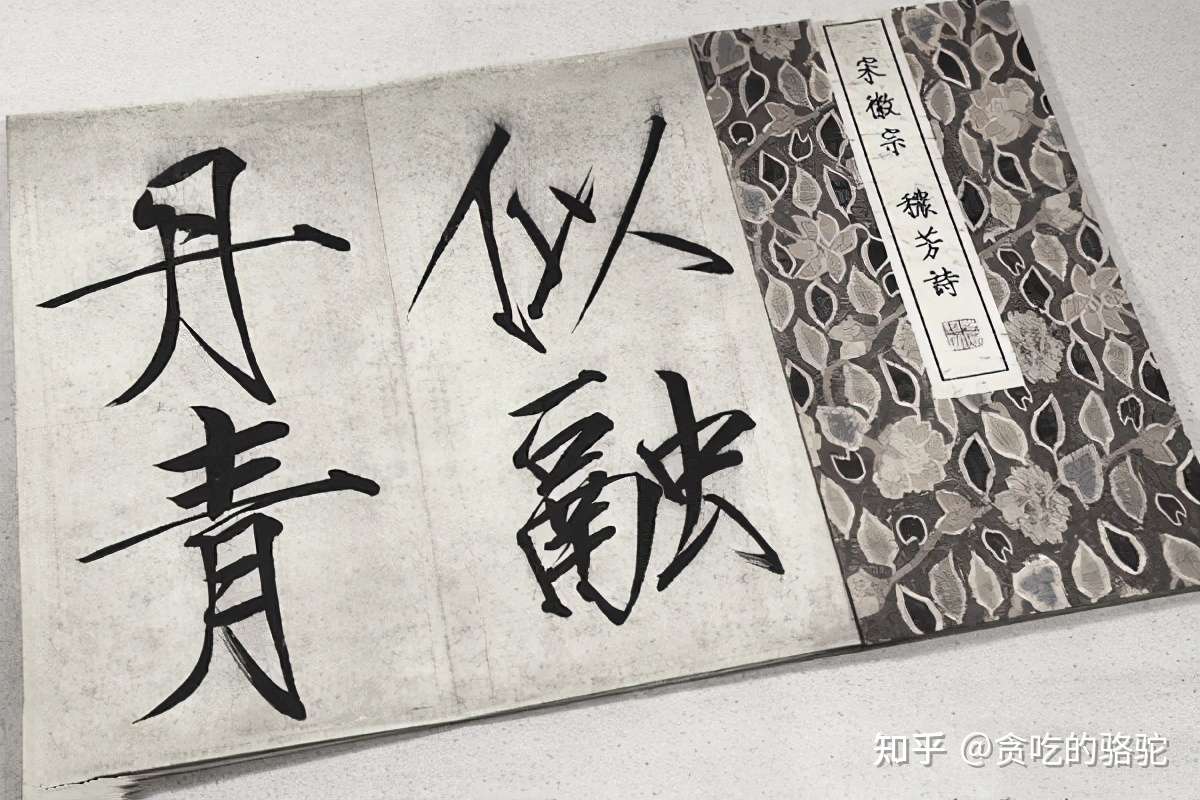 宋徽宗 穠芳詩
似融
丹青
知乎 @贪吃的骆驼